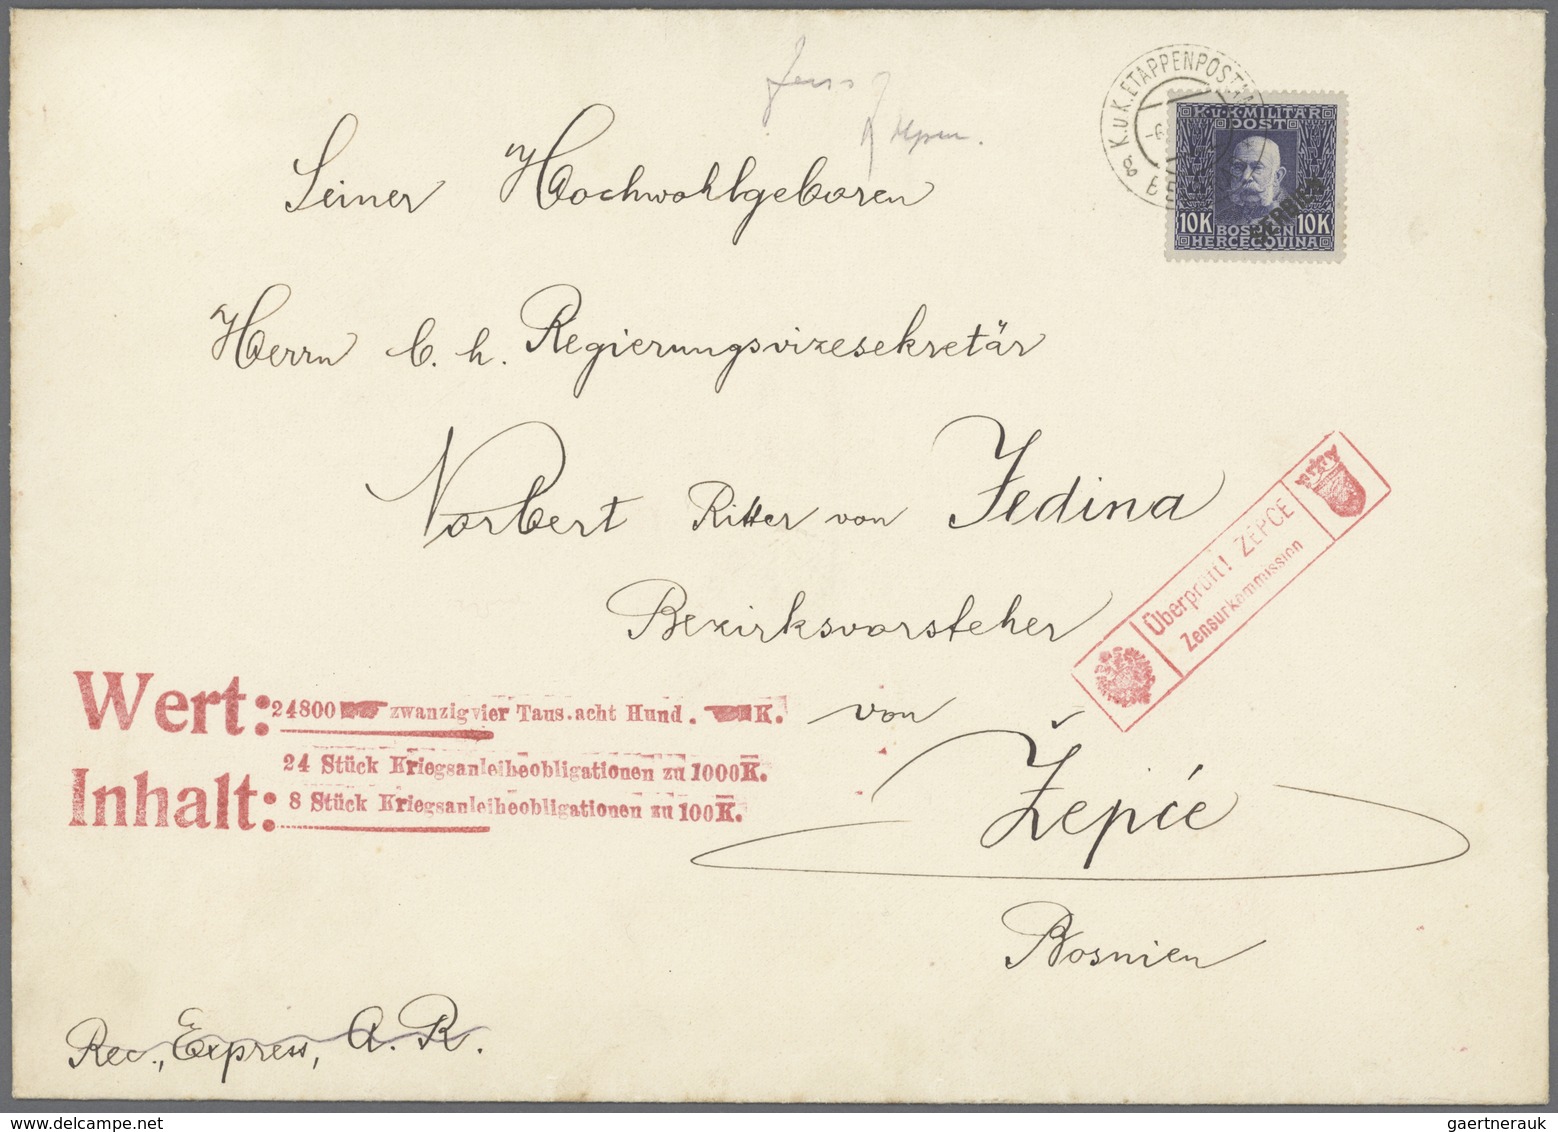 K.u.K. ETAPPENPOSTA
K.u.K. MILITÄR
POST
10K 10K
BOSNIEN
HERCEGOVINA
SERBIEN
Seiner Hochwohlgeboren
Herrn b. h. Regierungsvizesekretär
Norbert Ritter von Jedina
Bezirksvorsteher
von
Žepče
Bosnien
Überprüft! ZEPCE
Zensurkommission
Wert: 24800 zwanzigvier Taus. acht Hund. K.
Inhalt: 24 Stück Kriegsanleiheobligationen zu 1000K.
8 Stück Kriegsanleiheobligationen zu 100K.
Rec., Express, A. R.
gaertnerauk